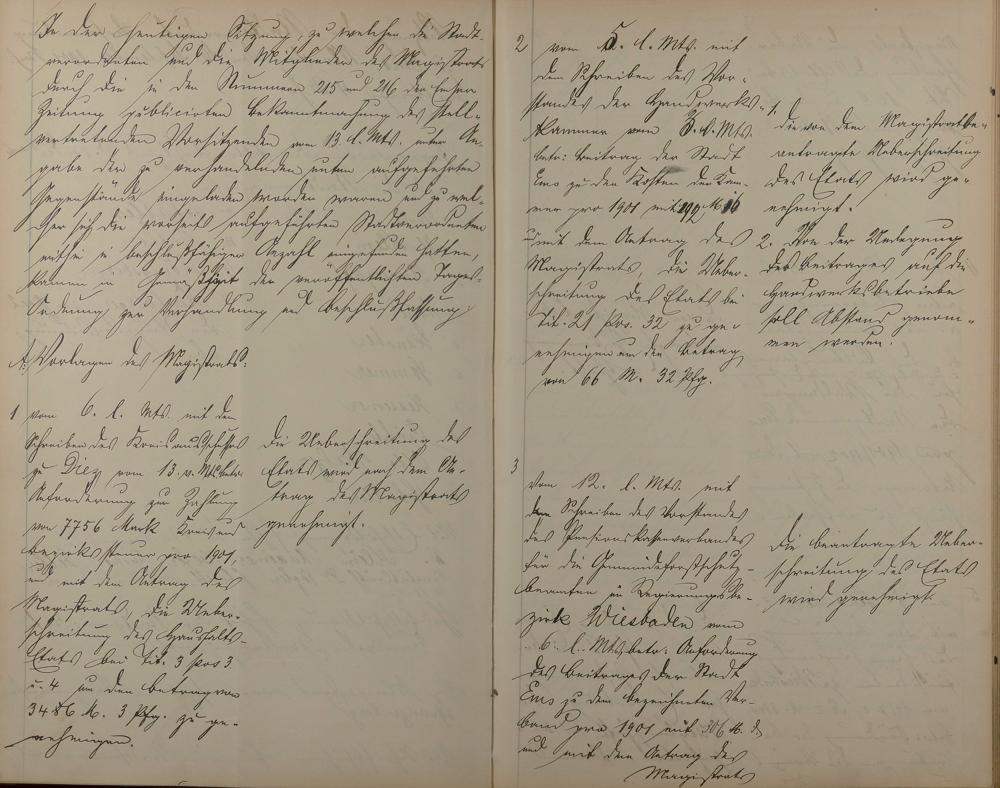 In der heutigen Sitzung, zu welcher die Stadt-
verordneten und die Mitglieder des Magistrats
durch die in den Nummern 215 und 216 der Emser
Zeitung publicirten Bekanntmachung des stell-
vertretenden Vorsitzenden vom 13 d. Mts. unter An-
gabe der zu verhandelnden unten aufgeführten
Gegenstände eingeladen worden waren und zu wel-
cher sich die vorseits aufgeführten Stadtverordneten
mithin in beschlußfähiger Anzahl eingefunden hatten,
kamen in Gemäßheit der veröffentlichten Tages-
Ordnung zur Verhandlung und Beschlußfassung:
A. Vorlagen des Magistrats:
1 vom 6. l. Mts. mit dem
Schreiben des Kreisausschusses
zu Diez vom 13. v. Mts. betr.
Anforderung zur Zahlung
von 7756 Mark Kreis und
Bezirkssteuer pro 1901,
und mit dem Antrag des
Magistrats, die Ueber-
schreitung des Haushalts-
Etats bei Tit. 3 pos 3
u. 4 um den Betrag von
3486 M. 3 Pfg. zu ge-
nehmigen.
Die Ueberschreitung des
Etats wird nach dem An-
trag des Magistrats
genehmigt.
2 vom 5. l. Mts. mit
dem Schreiben des Vor-
standes der Handwerks-
kammer vom 3. d. Mts.
betr: Beitrag der Stadt
Ems zu den Kosten der Kam-
mer pro 1901 mit
und mit dem Antrag des
Magistrats, die Ueber-
schreitung des Etats bei
Tit. 21 Pos. 32 zu ge-
nehmigen um den Betrag
von 66 M. 32 Pfg.
1. die von dem Magistrat be-
antragte Ueberschreitung
des Etats wird ge-
nehmigt.
2. Von der Umlegung
des Beitrages auf die
Handwerksbetriebe
soll Abstand genom-
men werden.
3
vom 12. l. Mts. mit
dem Schreiben des Vorstandes
des Pensionskassenverbandes
für die Gemeindeforstschutz-
beamten im Regierungsbe-
zirk Wiesbaden vom
6. l. Mts. betr: Anforderung
des Beitrages der Stadt
Ems zu dem bezeichneten Ver-
band pro 1901 mit 306 M.
und mit dem Antrag des
Magistrats
Die beantragte Ueber-
schreitung des Etats
wird genehmigt.